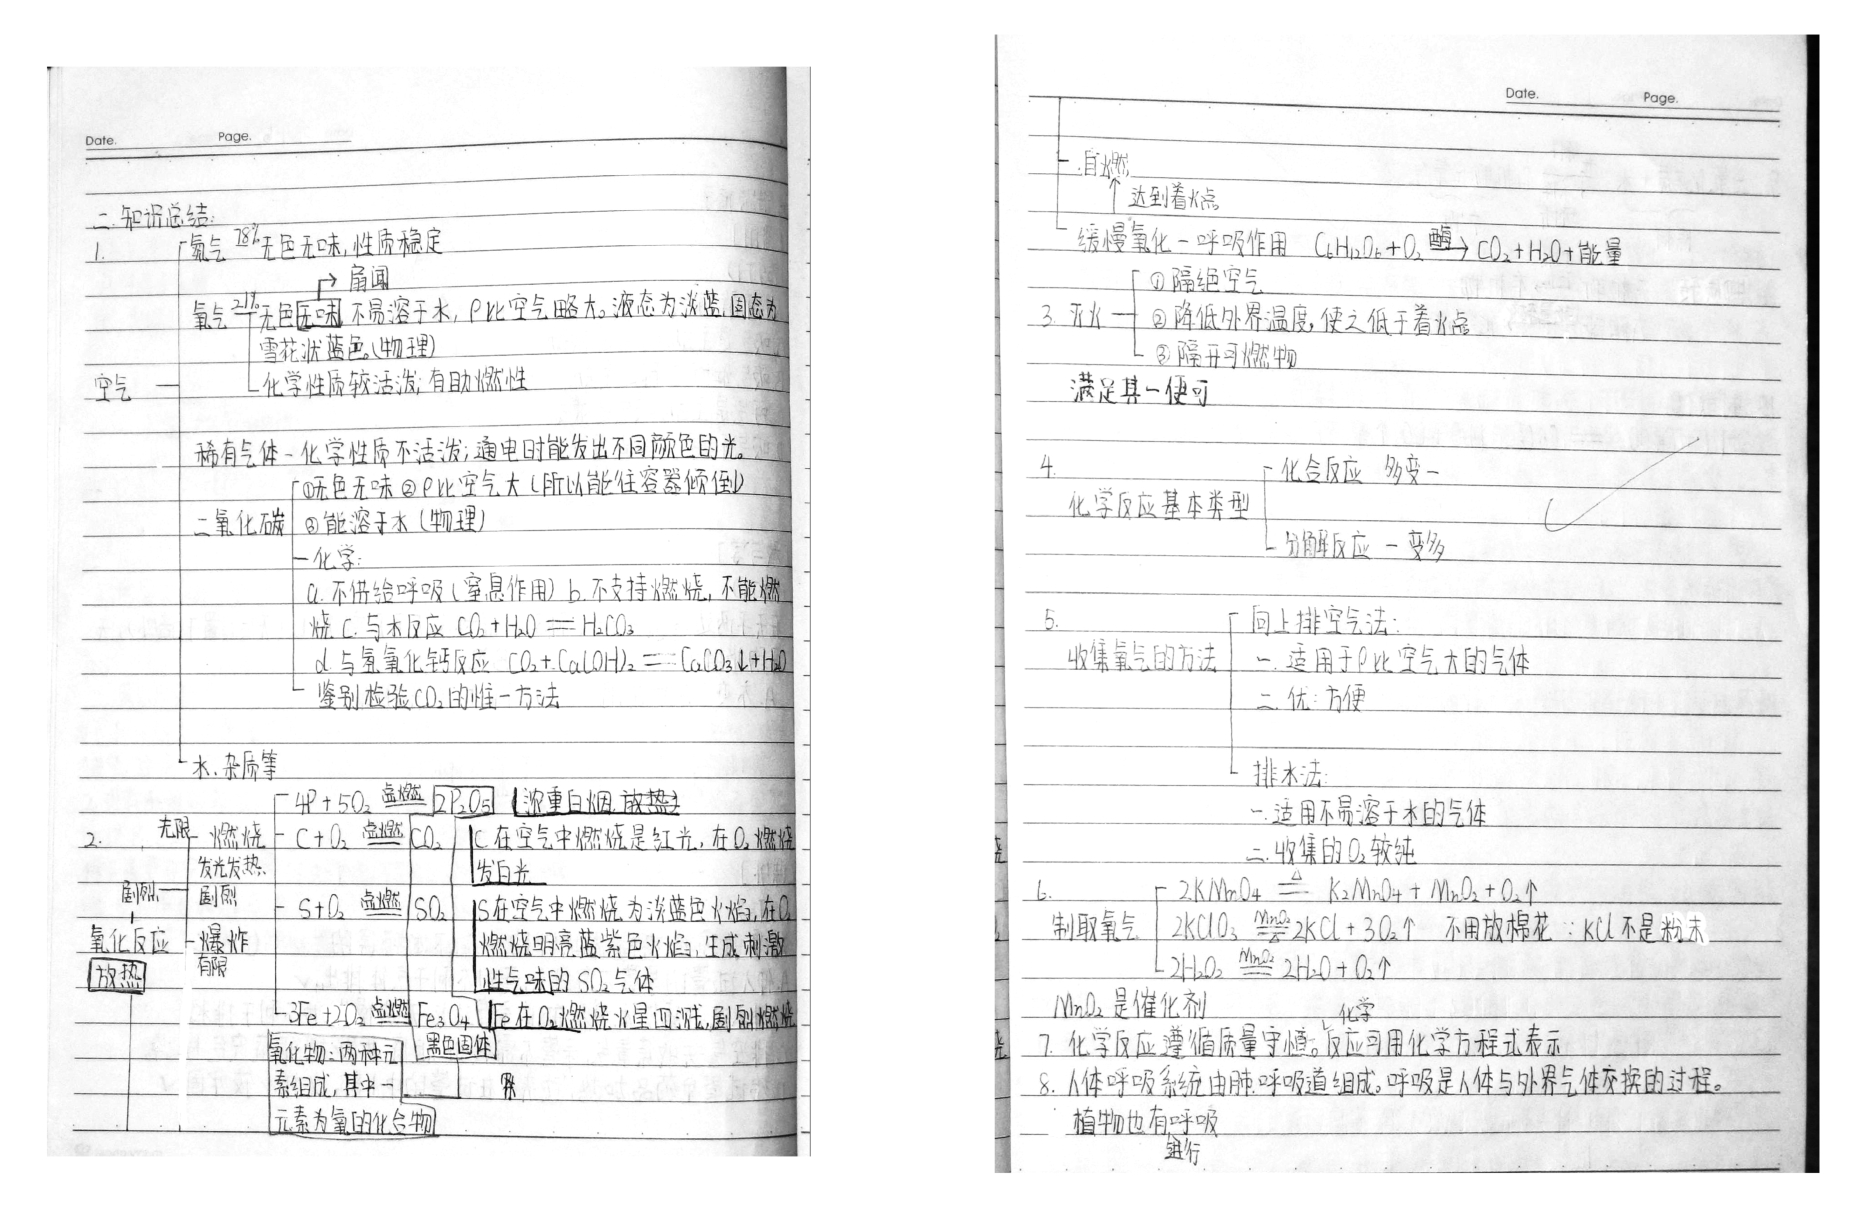 Date. Page.
二.知识总结:
1.
氮气 78% 无色无味,性质稳定
→ 扇闻
氧气 21% 无色无味 不易溶于水, ρ比空气略大。液态为淡蓝,固态为
雪花状蓝色。(物理)
空气
化学性质较活泼;有助燃性
稀有气体-化学性质不活泼;通电时能发出不同颜色的光。
①无色无味 ②ρ比空气大 (所以能往容器倾倒)
二氧化碳 ③能溶于水 (物理)
化学:
a. 不供给呼吸 (窒息作用) b. 不支持燃烧, 不能燃
烧 c. 与水反应 CO₂+H₂O == H₂CO₃
d. 与氢氧化钙反应 CO₂+Ca(OH)₂ == CaCO₃↓+H₂O
鉴别检验CO₂的惟一方法
水.杂质等
4P+5O₂ 点燃 2P₂O₅ (浓重白烟 放热)
2. 无限 燃烧 C+O₂ 点燃 CO₂ C在空气中燃烧是红光, 在O₂燃烧
发光发热 发白光
剧烈 剧烈 S+O₂ 点燃 SO₂ S在空气中燃烧为淡蓝色火焰,在O₂
氧化反应 爆炸 燃烧明亮蓝紫色火焰,生成刺激
放热 有限 性气味的SO₂气体
3Fe+2O₂ 点燃 Fe₃O₄ Fe在O₂燃烧火星四溅,剧烈燃烧
氧化物:两种元 黑色固体
素组成,其中一
元素为氧的化合物
Date. Page.
自燃
↑达到着火点
缓慢氧化-呼吸作用 C₆H₁₂O₆+O₂ 酶→ CO₂+H₂O+能量
①隔绝空气
3. 灭火 ②降低外界温度,使之低于着火点
③隔开可燃物
满足其一便可
4. 化合反应 多变一
化学反应基本类型
分解反应 一变多
5. 向上排空气法:
收集氧气的方法 一. 适用于ρ比空气大的气体
二. 优:方便
排水法:
一.适用不易溶于水的气体
二.收集的O₂较纯
6. 2KMnO₄ △== K₂MnO₄+MnO₂+O₂↑
制取氧气 2KClO₃ MnO₂==△ 2KCl+3O₂↑ 不用放棉花 ∵KCl不是粉末
2H₂O₂ MnO₂== 2H₂O+O₂↑
MnO₂是催化剂
化学
7. 化学反应遵循质量守恒。反应可用化学方程式表示
8. 人体呼吸系统由肺.呼吸道组成。呼吸是人体与外界气体交换的过程。
植物也有呼吸
进行